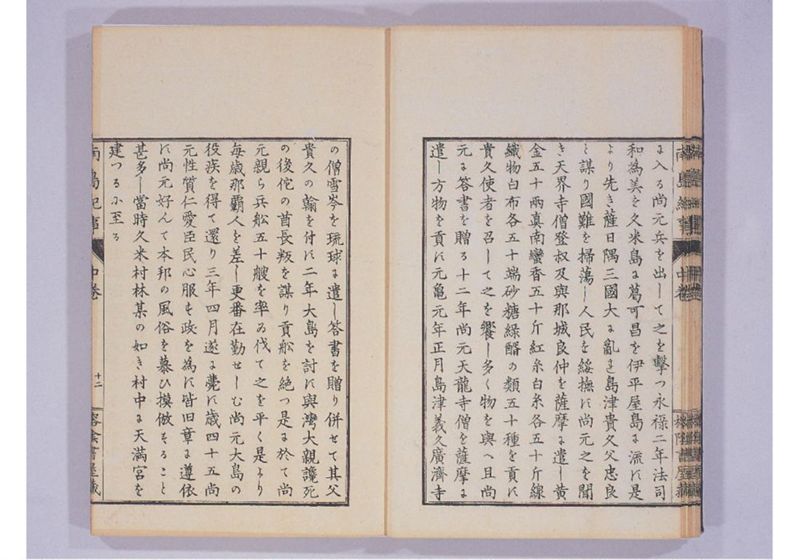 に入る尚元兵を出して之を擊つ永祿二年法司
和為美を久米島に葛可昌を伊平屋島に流す是
より先き薩日隅三國大に亂る島津貴久父忠良
と謀り國難を掃蕩し人民を綏撫す尚元之を聞
き天界寺僧登叔及與那城良仲を薩摩に遣し黃
金五十兩真南蠻香五十斤紅糸白糸各五十斤線
織物白布各五十端砂糖綠の類五十種を貢す
貴久使者を召して之を饗し多く物を與へ且尚
元に答書を贈る十二年尚元天龍寺僧を薩摩に
遣し方物を貢す元亀元年正月島津義久廣濟寺
の僧雪岑を琉球に遣し答書を贈り併せて其父
貴久の翰を付す二年大島を討す與灣大親讒死
の後佗の酋長叛を謀り貢舩を絶つ是に於て尚
元親ら兵舩五十艘を率ゐ伐て之を平く是より
每歳那霸人を差し更番在勤せしむ尚元大島の
役疾を得て還り三年四月遂に薨す歳四十五尚
元性質仁愛臣民心服も政を為す皆旧章に遵依
す尚元好んて本邦の風俗を慕ひ摸倣すること
甚多し當時久米村林某の如き村中に天満宮を
建つるに至る
南島紀事 中卷 十二 書屋藏